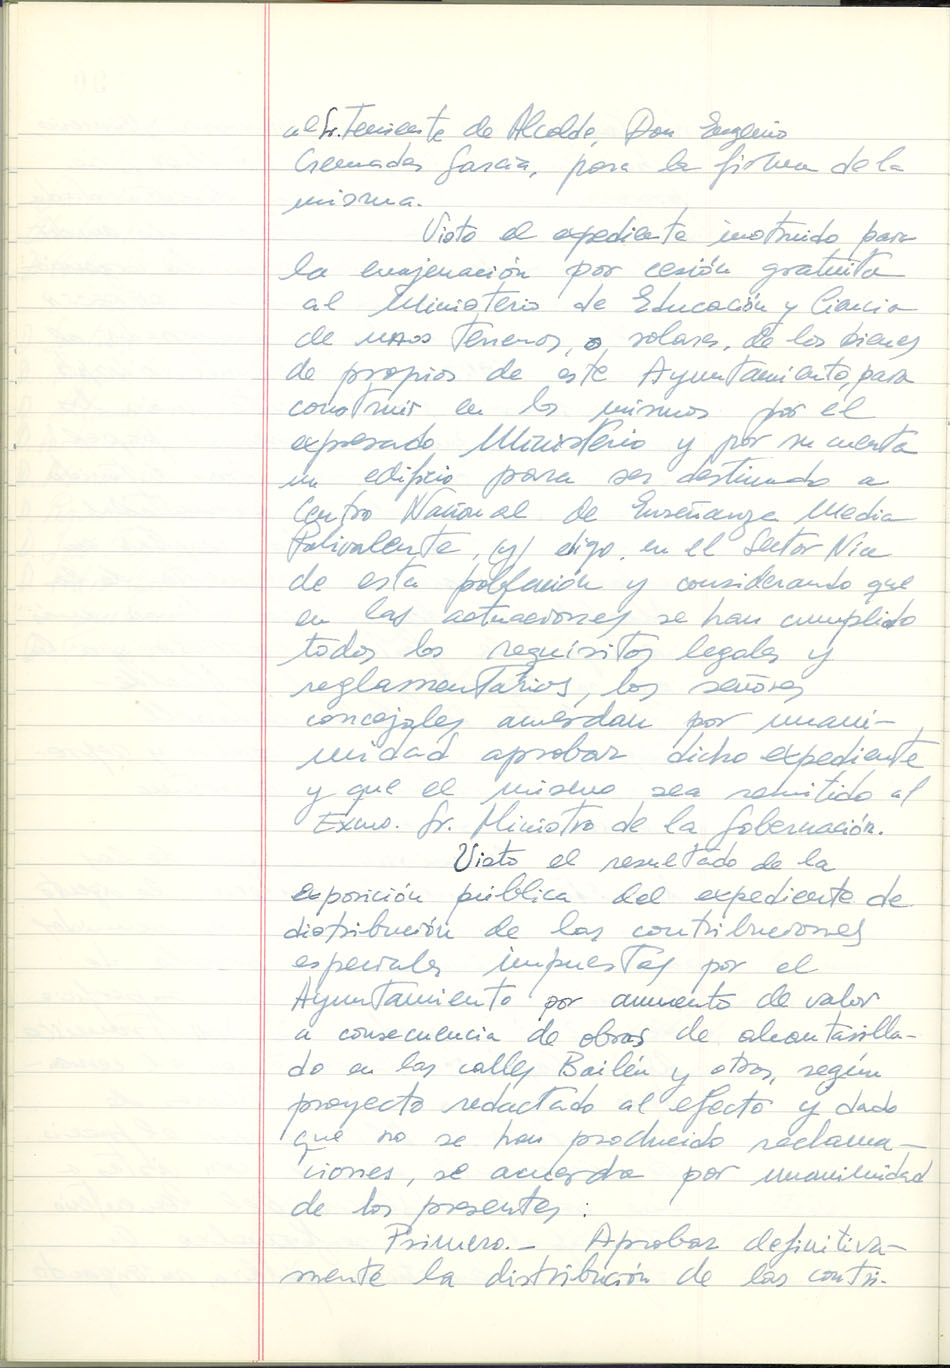 al Sr. Teniente de Alcalde, Don Eugenio
Cremades García, para la firma de la
misma.
Visto el expediente instruido para
la enajenación por cesión gratuita
al Ministerio de Educación y Ciencia
de unos terrenos, o solares, de los bienes
de propios de este Ayuntamiento, para
construir en los mismos por el
expresado Ministerio y por su cuenta
un edificio para ser destinado a
Centro Nacional de Enseñanza Media
Polivalente, (y) digo, en el Sector Nia
de esta población y considerando que
en las actuaciones se han cumplido
todos los requisitos legales y
reglamentarios, los señores
concejales acuerdan por unani-
midad aprobar dicho expediente
y que el mismo sea remitido al
Excmo. Sr. Ministro de la Gobernación.
Visto el resultado de la
exposición pública del expediente de
distribución de las contribuciones
especiales impuestas por el
Ayuntamiento por aumento de valor
a consecuencia de obras de alcantarilla-
do en las calles Bailén y otras, según
proyecto redactado al efecto y dado
que no se han producido reclama-
ciones, se acuerda por unanimidad
de los presentes:
Primero.- Aprobar definitiva-
mente la distribución de las contri-